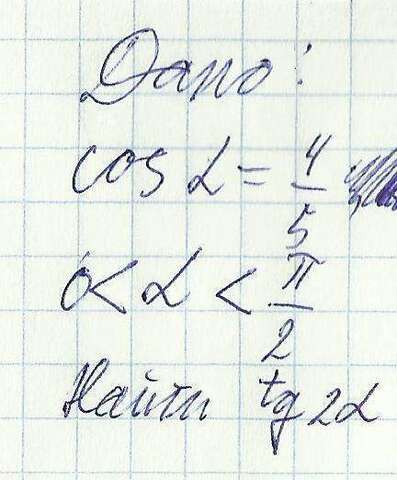 Дано:
cos α = 4/5
0 < α < π/2
Найти tg 2α